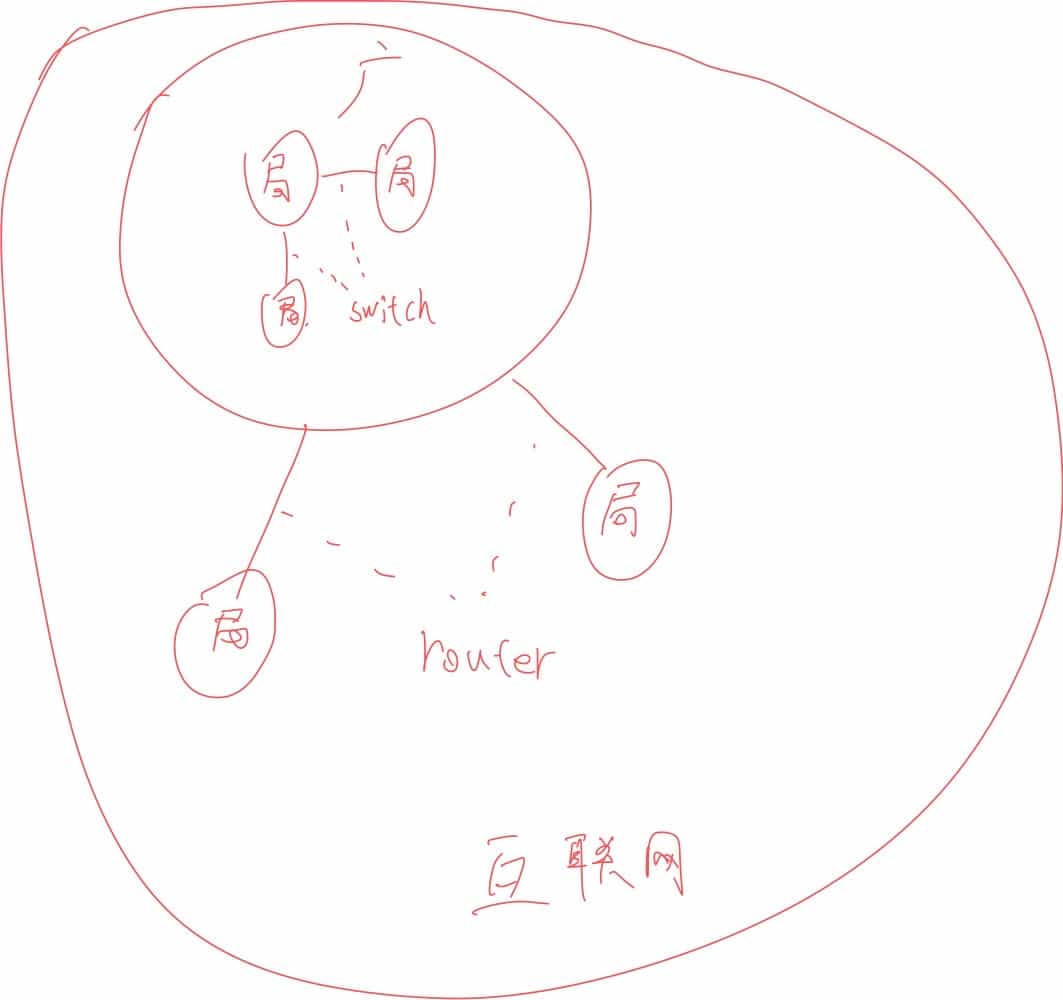 广
局 局
局 switch
局
局
router
互联网